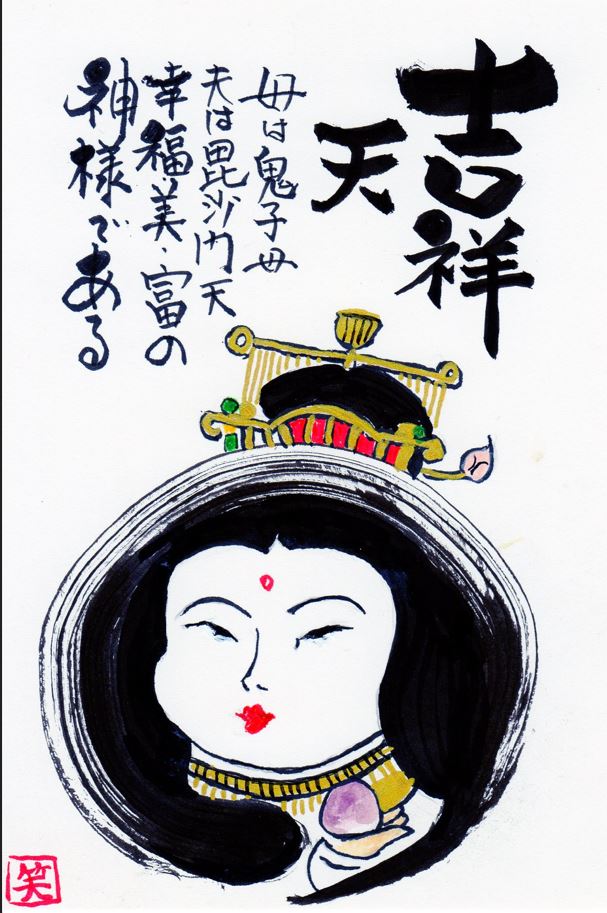 吉祥
天
母は鬼子母
夫は毘沙門天
幸福・美・富の
神様である
笑